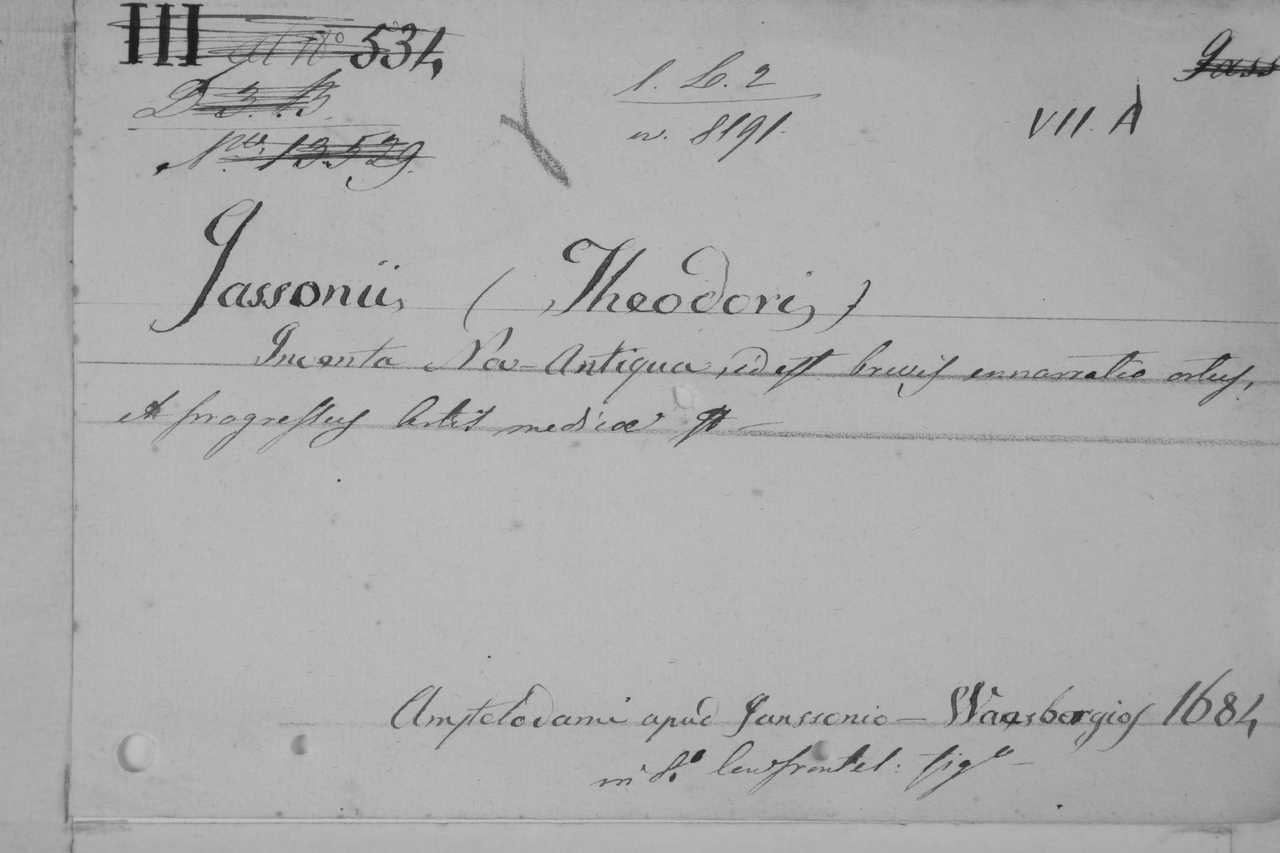 III al No 534
D. 3. B.
No. 13529.
1. L. 2
n. 8191.
VII. A
Jass
Jassonii, (Theodori,)
Inventa Nov-Antiqua, id est brevis ennarratio ortus,
et progressus Artis medicæ
Amstelodami apud Janssonio-Waesbergios 1684
in 8.o frontel: fig.e